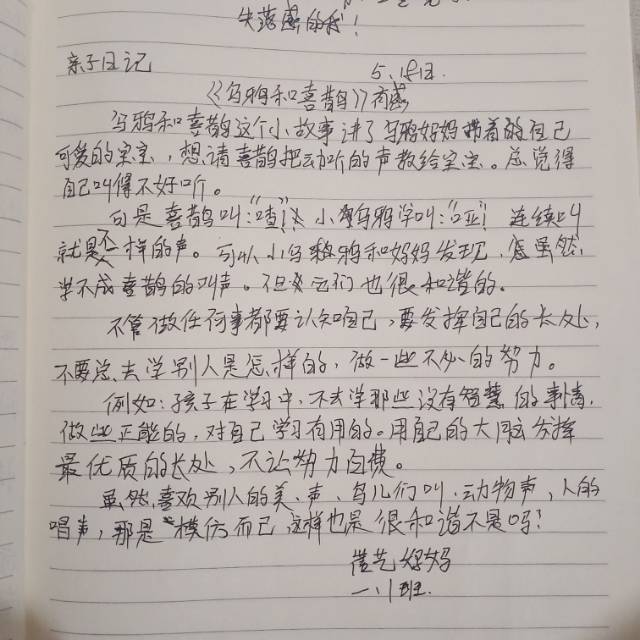 失落感的我!
亲子日记 5、18日.
《乌鸦和喜鹊》有感
乌鸦和喜鹊这个小故事讲了乌鸦妈妈带着的自己
可爱的宝宝,想请喜鹊把动听的声教给宝宝。总觉得
自己叫得不好听。
可是喜鹊叫:“喳! 小乌鸦学叫:“哑! 连续叫
就是不一样的声。可以小乌鸦和妈妈发现,虽然,
学不成喜鹊的叫声。但它们也很和谐的。
不管做任何事都要认知自己,要发挥自己的长处,
不要总去学别人是怎样的,做一些不必的努力。
例如:孩子在学习中,不去学那些没有智慧的事情,
做些正能的,对自己学习有用的。用自己的大脑发挥
最优质的长处,不让努力白费。
虽然喜欢别人的美、声、鸟儿们叫、动物声,人的
唱声,那是模仿而已 这样也是很和谐不是吗?
妈妈
一、1班.